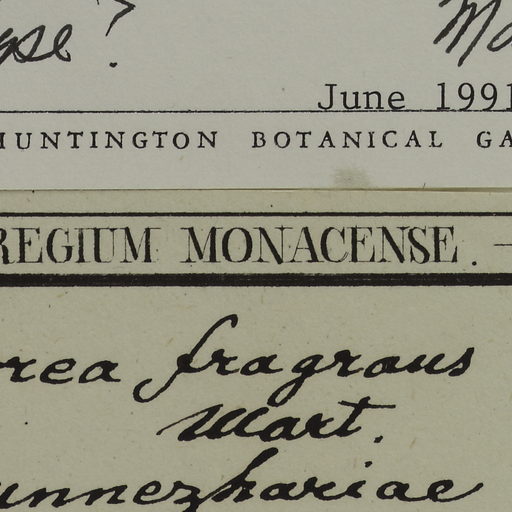 June 1991
HUNTINGTON BOTANICAL GA
REGIUM MONACENSE. —
rea fragrans
Mart.
unnezhariae